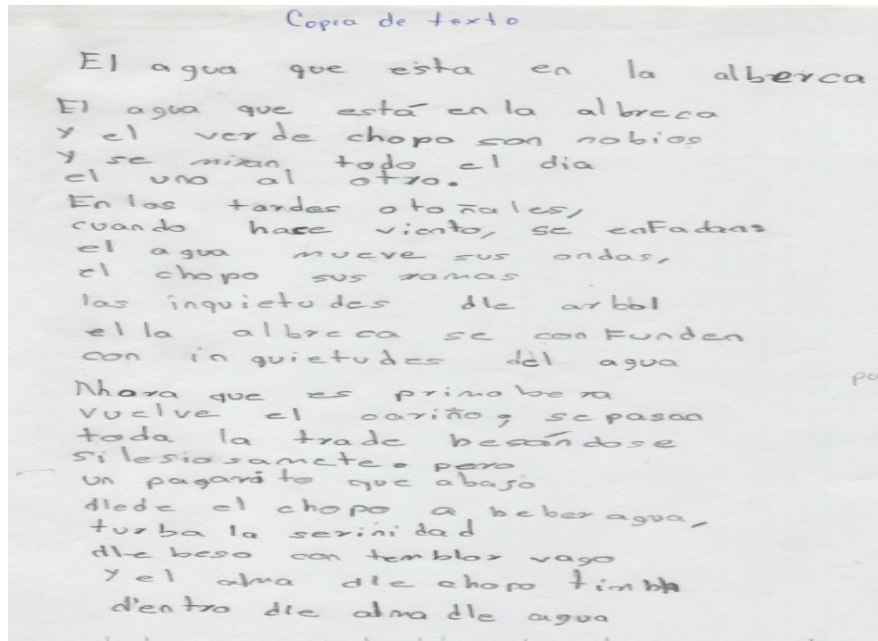 Copia de texto
El agua que esta en la alberca
El agua que está en la albreca
y el verde chopo son nobios
y se miran todo el dia
el uno al otro.
En las tardes otoñales,
cuando hace viento, se enfadans
el agua mueve sus ondas,
el chopo sus ramas
las inquietudes dle arbbl
el la albreca se confunden
con inquietudes del agua
Nhora que es primobera
vuelve el cariño, se pasan
toda la trade besándose
silesiosamete. pero
un pagaríto que abajo
dlede el chopo a beber agua,
turba la serinidad
dle beso con temblor vago
y el alma dle chopo
dentro dle alma dle agua